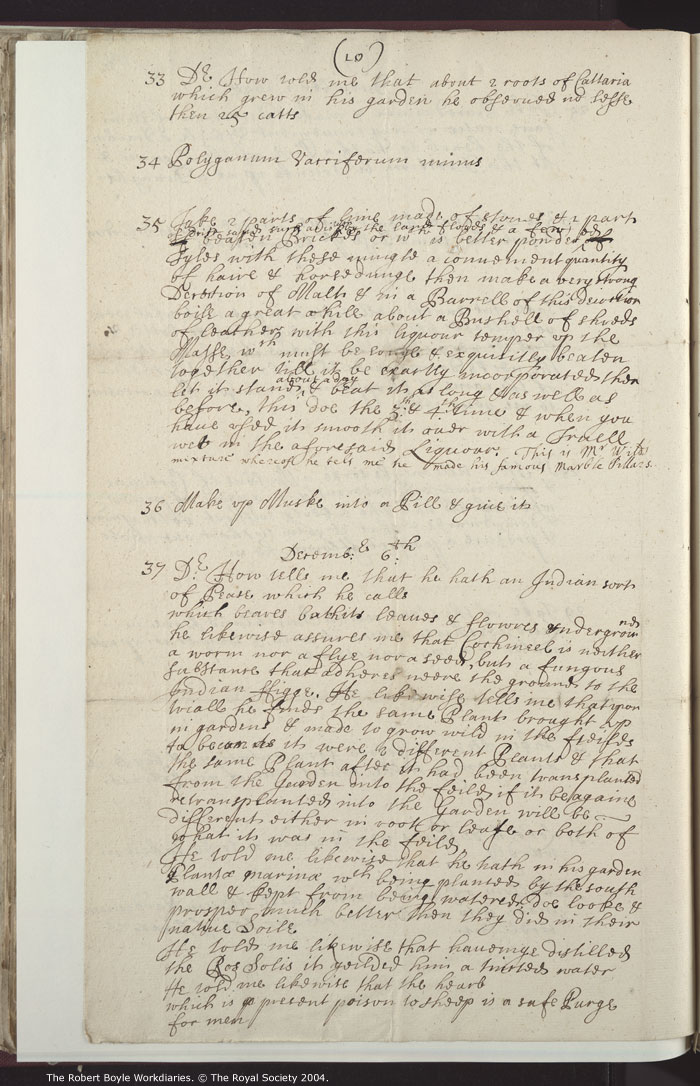 (10)
33 Dr. How told me that about 2 roots of Cattaria
which grew in his garden he observed no lesse
then 25 catts
34 Polyganum Vacciferum minus
35 Take 2 parts of lime made of stones & 1 part
the & a few
of beaten Brickes or wch is better powder of
Tyles with these mingle a convenient quantity
of haire & horsedunge then make a very strong
Decoction of Malt & in a Barrell of this decoction
boile a great while about a Bushell of shreds
of leather with this liquour temper up the
Masse wch must be tough & exquisitly beaten
together till it be exactly incorporated then
about a day
let it stand & beat it as long & as well as
before, this doe the 3th & 4th time & when you
have used it smooth it over with a Truell
wet in the aforesaid Liquour. This is Mr
mixture whereof he tels me he made his famous Marble Pillars.
36 Make up Muske into a Pill & give it
Decemb: 6th
37 Dr. How tells me that he hath an Indian sort
of Pease which he calls
which beares both its leaves & flowres underground
he likewise assures me that Cochineel is neither
a worm nor a flye nor a seed but a fungous
substance that adheres neere the ground to the
Indian Figge. He likewise tells me that upon
triall he finds the same Plant brought up
in gardens & made to grow wild in the feilds
to become as it were 2 different Plants & that
the same Plant after it had been transplanted
from the Garden into the feild if it be againe
retransplanted into the Garden will be
different either in root or leafe or both of
what it was in the feild.
He told me likewise that he hath in his garden
Plantæ marinæ wch being planted by the south
wall & kept from being watered doe looke &
prosper much better then they did in their
native Soile
He told me likewise that haveinge distilled
the Ros Solis it yeilded him a tincted water
He told me likewise that the hearb
which is a present poison to sheep is a safe Purge
for men
The Robert Boyle Workdiaries. © The Royal Society 2004.